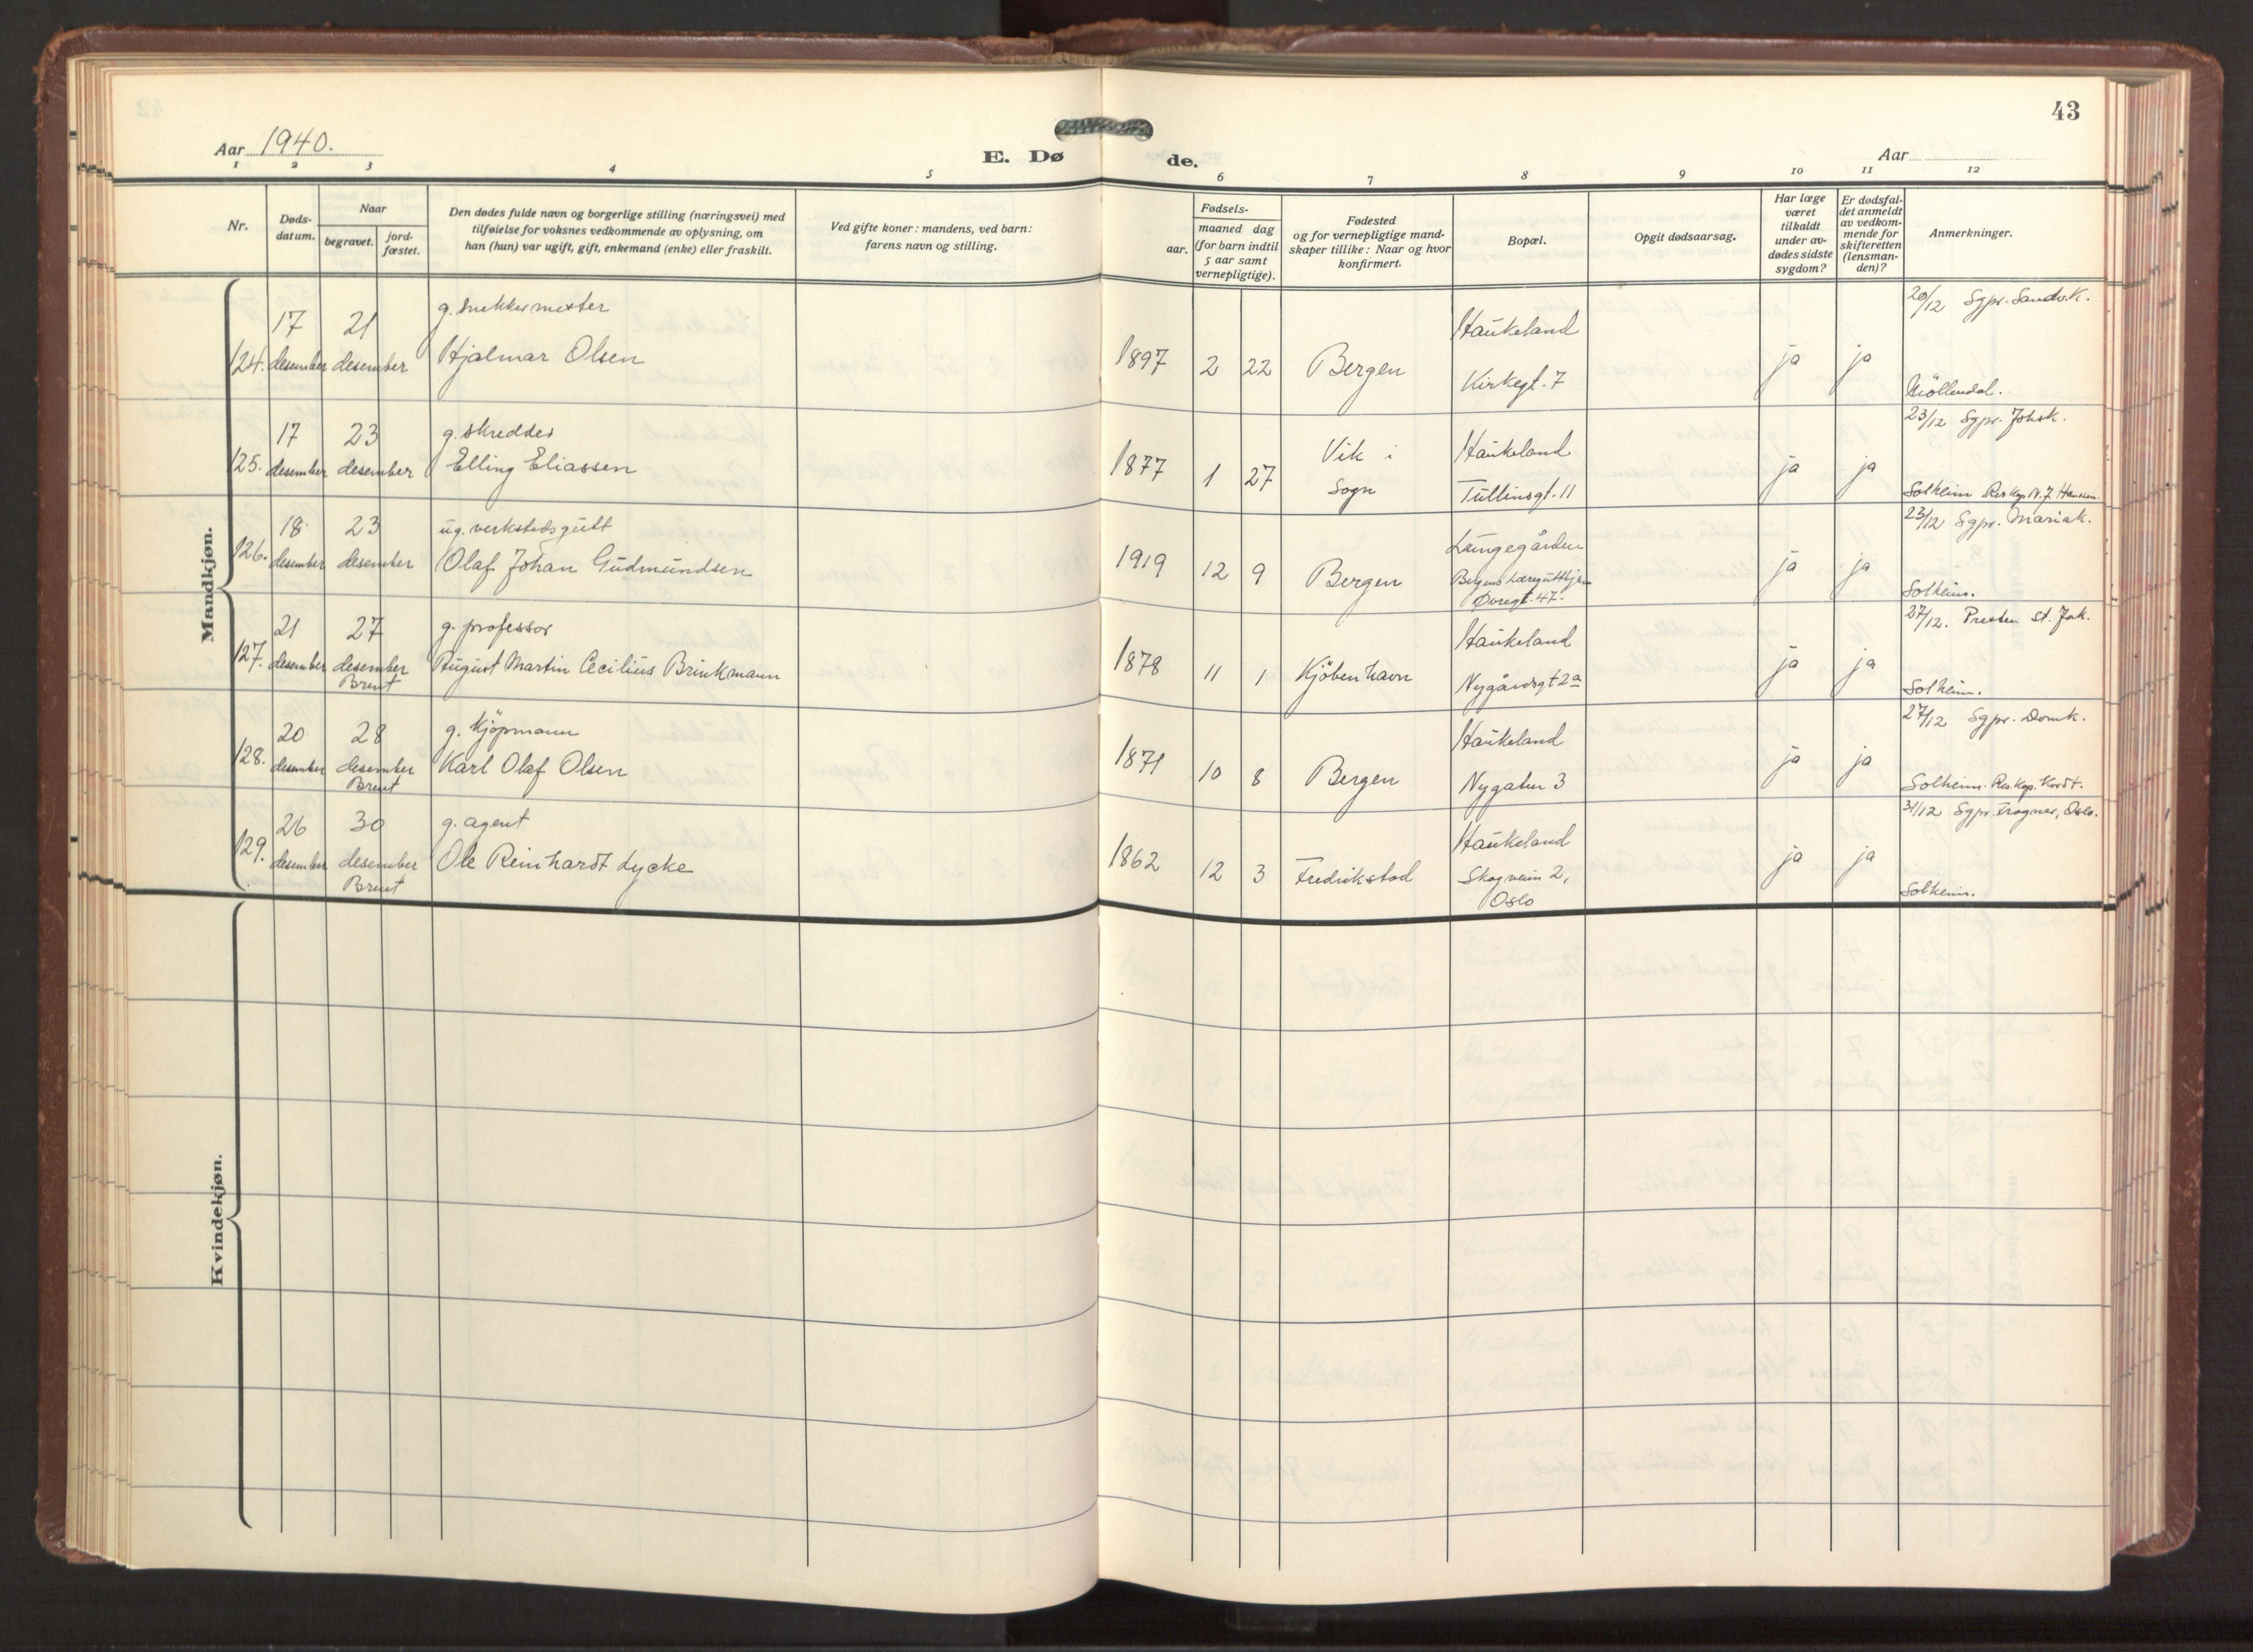 43
Aar 1940.
E. Dø
de.
Aar
1 2 3 4 5 6 7 8 9 10 11 12
Nr.
Døds-
datum.
Naar
begravet.
jord-
fæstet.
Den dødes fulde navn og borgerlige stilling (næringsvei) med
tilføielse for voksnes vedkommende av oplysning, om
han (hun) var ugift, gift, enkemand (enke) eller fraskilt.
Ved gifte koner: mandens, ved barn:
farens navn og stilling.
Fødsels-
aar.
maaned dag
(for barn indtil
5 aar samt
vernepligtige).
Fødested
og for vernepligtige mand-
skaper tillike: Naar og hvor
konfirmert.
Bopæl.
Opgit dødsaarsag.
Har læge
været
tilkaldt
under av-
dødes sidste
sygdom?
Er dødsfal-
det anmeldt
av vedkom-
mende for
skifteretten
(lensman-
den)?
Anmerkninger.
Mandkjøn.
17 21 g. snekkermester Haukeland 20/12 Sgpr. Sandv.k.
124. desember desember Hjalmar Olsen 1897 2 22 Bergen Kirkegt. 7 ja ja
Møllendal.
17 23 g. skredder Vik i Haukeland 23/12 Sgpr. Johsk.
125. desember desember Elling Eliassen 1877 1 27 Sogn Tullinsgt. 11 ja ja
Solheim Res. kap. N. J. Hansen.
18 23 ug. verkstedsgutt Lungegården 23/12 Sgpr. Mariak.
126. desember desember Olaf Johan Gudmundsen 1919 12 9 Bergen Bergens Læregutthjem ja ja
Øvregt. 47. Solheim.
21 27 g. professor Haukeland 27/12. Presten St. Jak.
127. desember desember August Martin Cecilius Brinkmann 1878 11 1 Kjøbenhavn Nygårdsgt 2a ja ja
Brent Solheim.
20 28 g. Kjøpmann Haukeland 27/12 Sgpr. Domk.
128. desember desember Karl Olaf Olsen 1871 10 8 Bergen Nygaten 3 ja ja
Brent Solheim. Res. kap. Kordt.
26 30 g. agent Haukeland 31/12 Sgpr. Frogner, Oslo.
129. desember desember Ole Reinhardt Lycke 1862 12 3 Fredrikstad Skogveien 2, ja ja
Brent Oslo Solheim.
Kvindekjøn.